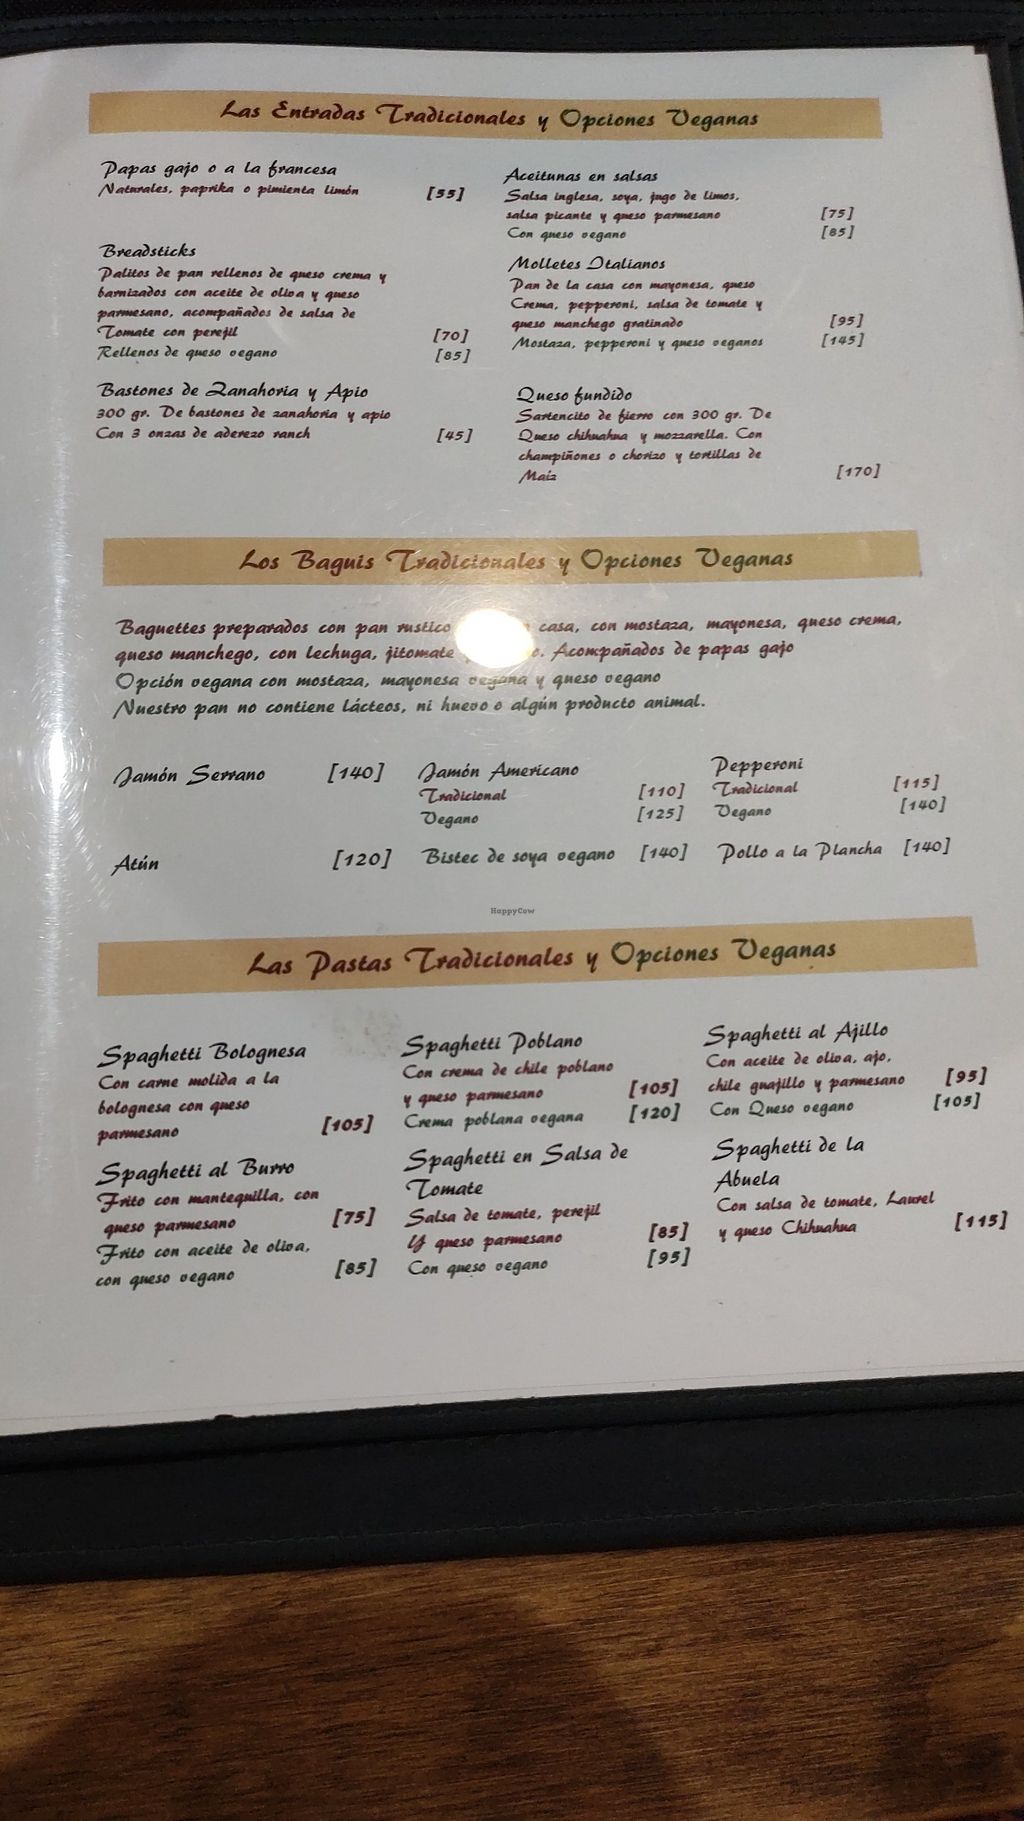 Las Entradas Tradicionales y Opciones Veganas
Papas gajo o a la francesa
Naturales, paprika o pimienta limón [55]
Breadsticks
Palitos de pan rellenos de queso crema y
barnizados con aceite de oliva y queso
parmesano, acompañados de salsa de
Tomate con perejil [70]
Rellenos de queso vegano [85]
Bastones de Zanahoria y Apio
300 gr. De bastones de zanahoria y apio
Con 3 onzas de aderezo ranch [45]
Aceitunas en salsas
Salsa inglesa, soya, jugo de limos,
salsa picante y queso parmesano [75]
Con queso vegano [85]
Molletes Italianos
Pan de la casa con mayonesa, queso
Crema, pepperoni, salsa de tomate y
queso manchego gratinado [95]
Mostaza, pepperoni y queso veganos [145]
Queso fundido
Sartencito de fierro con 300 gr. De
Queso chihuahua y mozzarella. Con
champiñones o chorizo y tortillas de
Maíz [170]
Los Baguis Tradicionales y Opciones Veganas
Baguettes preparados con pan rustico casa, con mostaza, mayonesa, queso crema,
queso manchego, con lechuga, jitomate Acompañados de papas gajo
Opción vegana con mostaza, mayonesa vegana y queso vegano
Nuestro pan no contiene lácteos, ni huevo o algún producto animal.
Jamón Serrano [140]
Jamón Americano
Tradicional [110]
Vegano [125]
Pepperoni
Tradicional [115]
Vegano [140]
Atún [120]
Bistec de soya vegano [140]
Pollo a la Plancha [140]
HappyCow
Las Pastas Tradicionales y Opciones Veganas
Spaghetti Bolognesa
Con carne molida a la
bolognesa con queso
parmesano [105]
Spaghetti Poblano
Con crema de chile poblano
y queso parmesano [105]
Crema poblana vegana [120]
Spaghetti al Ajillo
Con aceite de oliva, ajo,
chile guajillo y parmesano [95]
Con Queso vegano [105]
Spaghetti al Burro
Frito con mantequilla, con
queso parmesano [75]
Frito con aceite de oliva,
con queso vegano [85]
Spaghetti en Salsa de
Tomate
Salsa de tomate, perejil
Y queso parmesano [85]
Con queso vegano [95]
Spaghetti de la
Abuela
Con salsa de tomate, Laurel
y queso Chihuahua [115]